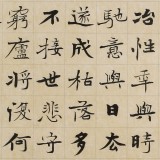 冶性年與時
馳意與日去
遂成枯落多
不接世悲守
窮廬將復何